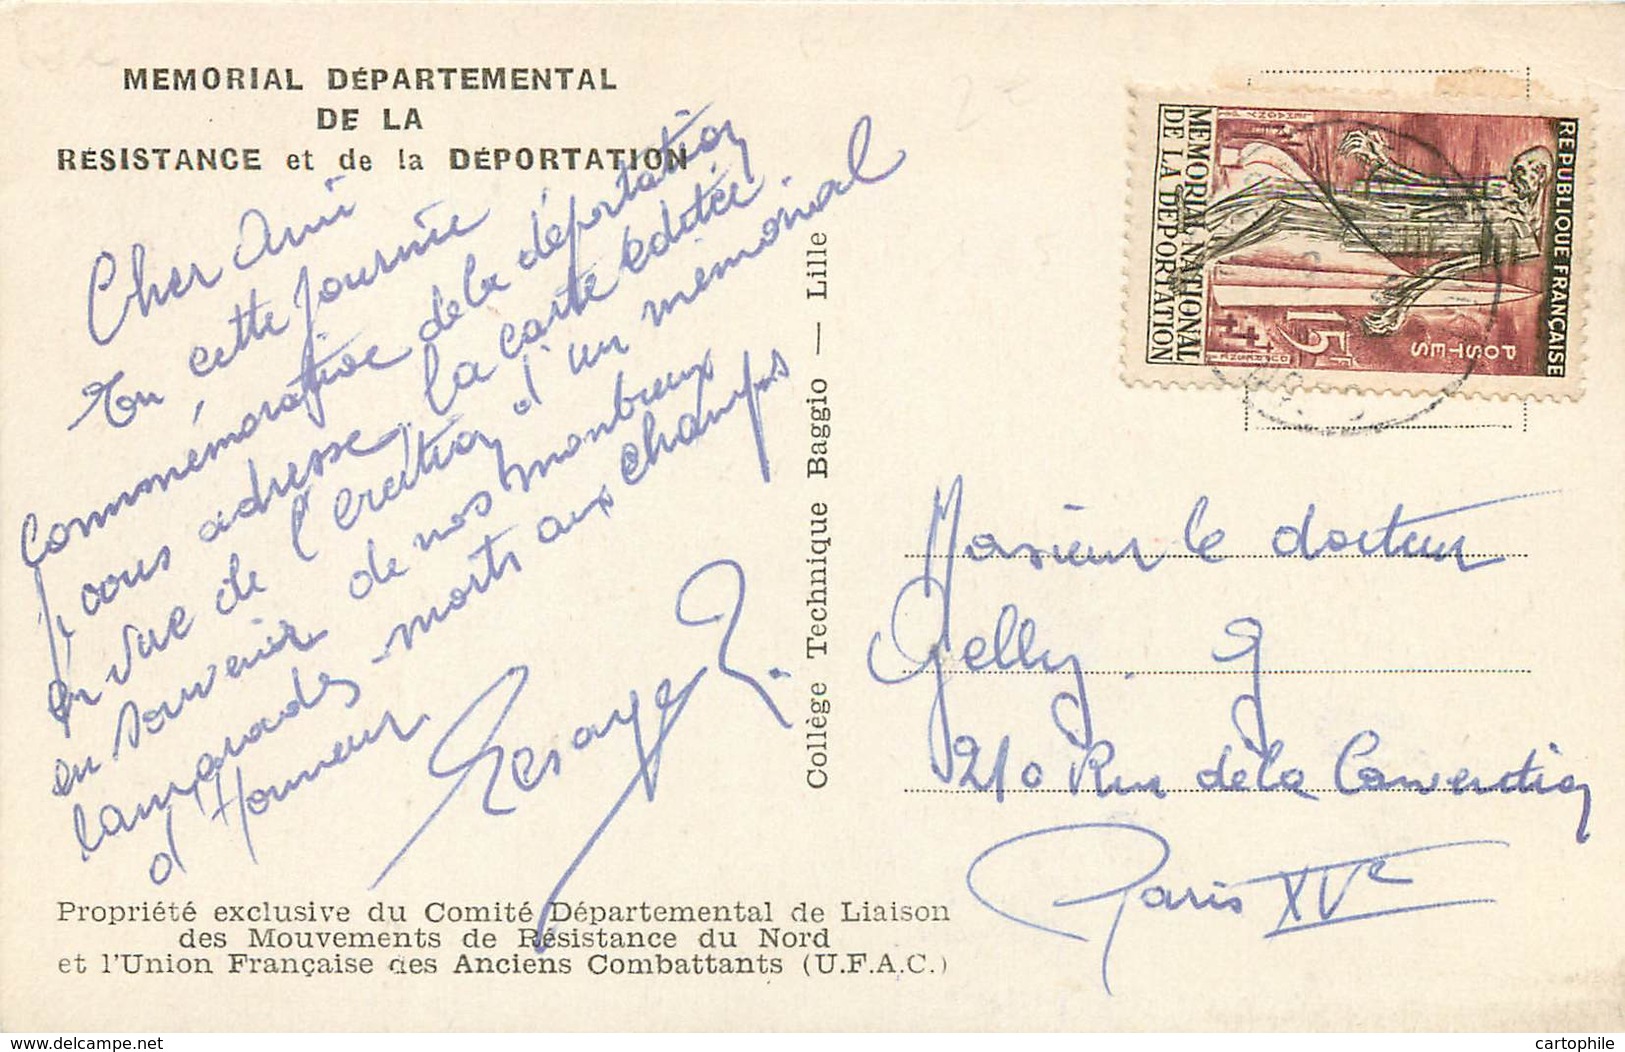 MEMORIAL DÉPARTEMENTAL
DE LA
RÉSISTANCE et de la DÉPORTATION
Cher Ami
En cette journée
commémorative de la déportation
je vous adresse la carte éditée
en vue de l'érection d'un mémorial
en souvenir de nos nombreux
camarades morts aux champs
d'Honneur
Lesage
Collège Technique Baggio — Lille
REPUBLIQUE FRANÇAISE
POSTES
15F
MEMORIAL NATIONAL
DE LA DEPORTATION
Monsieur le docteur
Gelly
210 Rue de la Convention
Paris XVe
Propriété exclusive du Comité Départemental de Liaison
des Mouvements de Résistance du Nord
et l'Union Française des Anciens Combattants (U.F.A.C.)
www.delcampe.net
cartophile